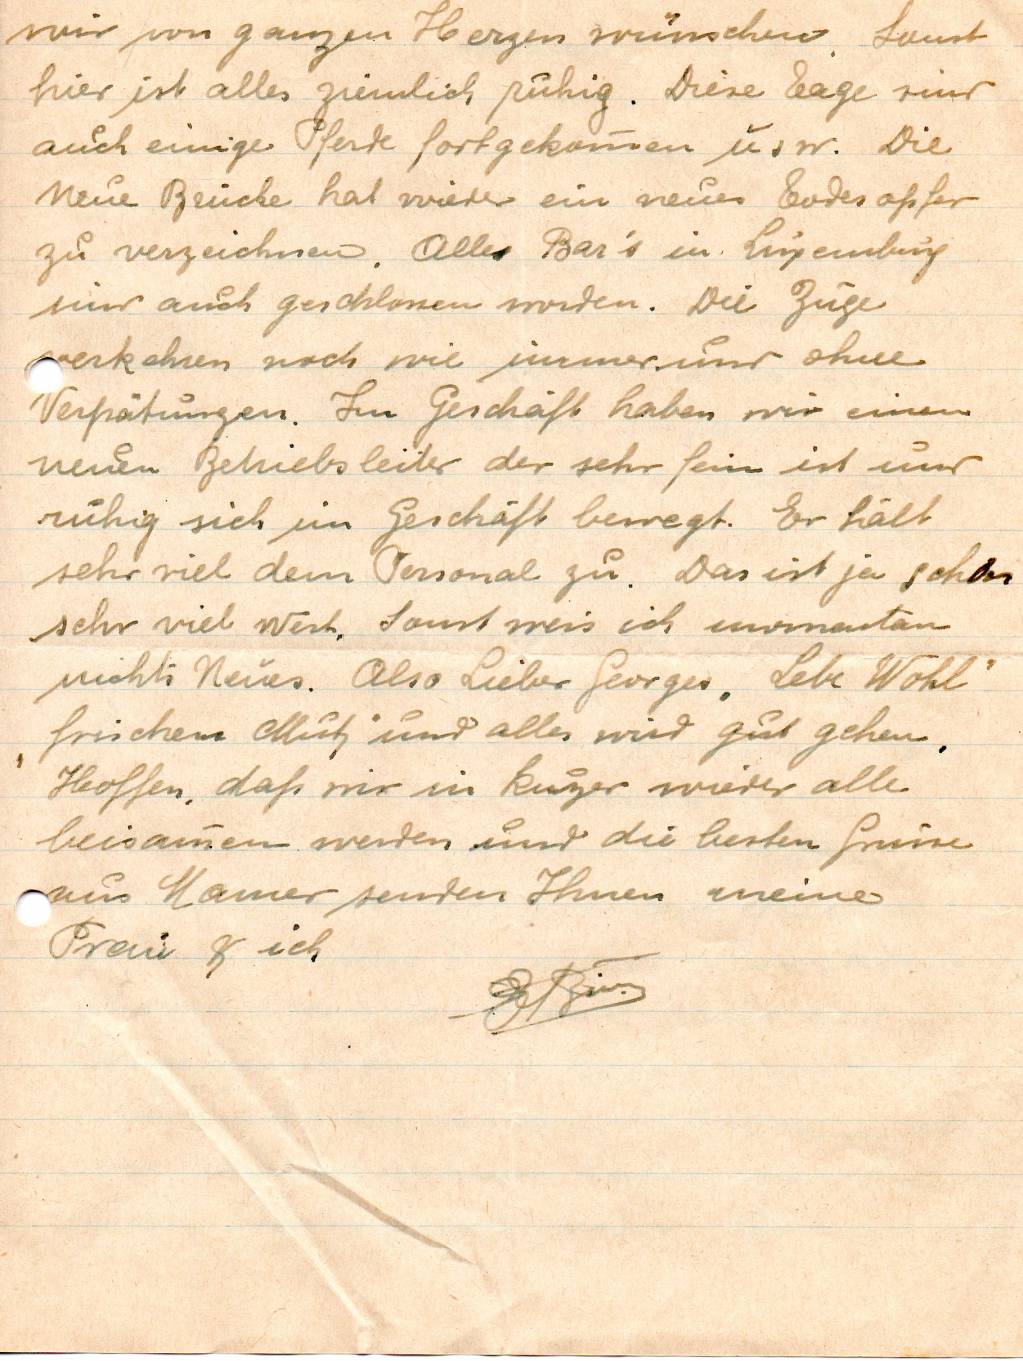 wir von ganzen Herzen wünschen. Sonst
hier ist alles ziemlich ruhig. Diese Tage sind
auch einige Pferde fortgekom̄en u.s.w. Die
Neue Brücke hat wieder ein neues Todesopfer
zu verzeichnen. Alle Bar's in Luxemburg
sind auch geschlossen worden. Die Züge
verkehren noch wie immer und ohne
Verspätungen. Im Geschäft haben wir einen
neuen Betriebsleiter der sehr fein ist und
ruhig sich im Geschäft bewegt. Er hält
sehr viel dem Personal zu. Das ist ja schon
sehr viel Wert. Sonst weis ich momentan
nichts Neues. Also Lieber Georges, "Lebe Wohl"
"frischem Mut" und alles wird gut gehen.
Hoffen, daß wir in kurzer wieder alle
beisam̄en werden und die besten Grüsse
aus Mamer senden Ihnen meine
Frau & ich